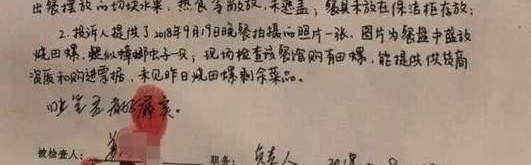 出餐摆放的切块水果，热食等敞放，未遮盖；餐具未放在保洁柜存放；
2.投诉人提供了2018年9月19日晚餐拍摄的照片一张，图片为餐盘中盛放
烧田螺，疑似蟑螂虫子一只；现场检查该餐馆购有田螺，能提供供货商
资质和购进票据，未见昨日烧田螺剩余菜品。
以上笔录
被检查人：
职务：负责人 2018